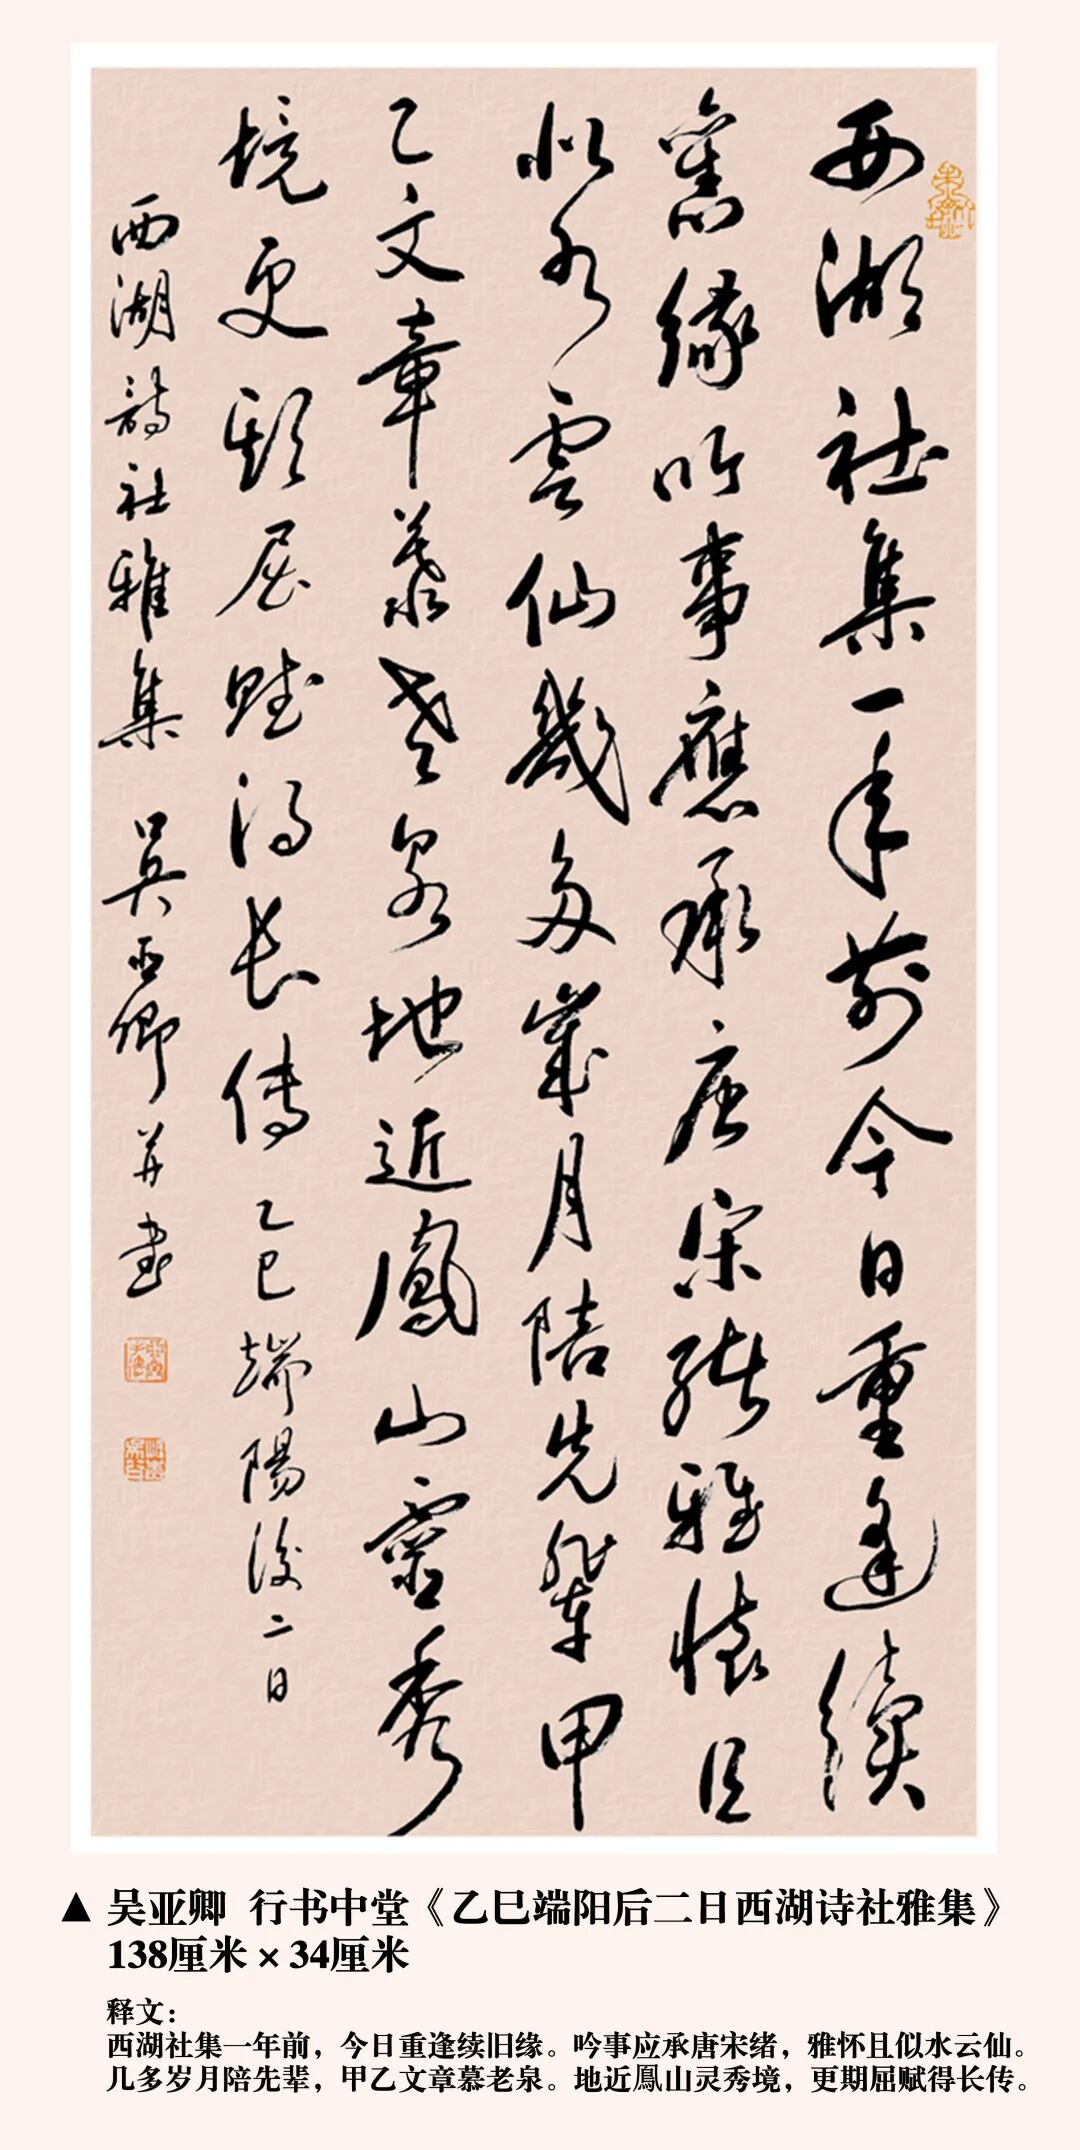 西湖社集一年前今日重逢续
舊缘吟事應承唐宋绪雅懷且
似水雲仙幾多歲月陪先輩甲
乙文章慕老泉地近鳳山靈秀
境更期屈赋得长传乙巳端陽後二日
西湖詩社雅集 吴亚卿并书
▲ 吴亚卿 行书中堂《乙巳端阳后二日西湖诗社雅集》
138厘米 × 34厘米
释文：
西湖社集一年前，今日重逢续旧缘。吟事应承唐宋绪，雅怀且似水云仙。
几多岁月陪先辈，甲乙文章慕老泉。地近鳳山灵秀境，更期屈赋得长传。